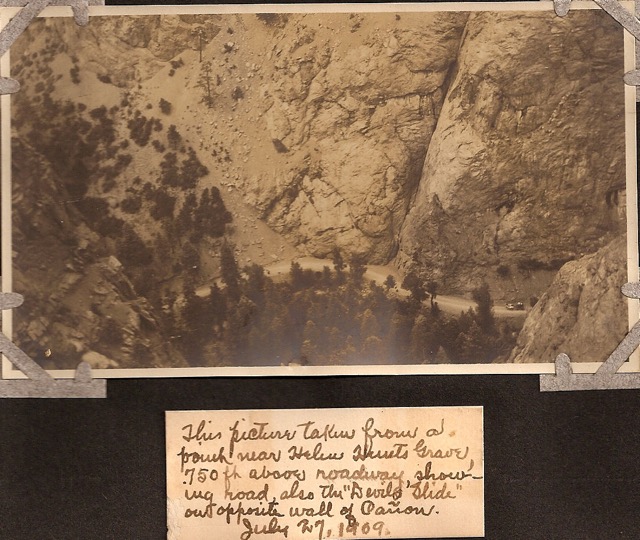 This picture taken from a
point near Helen Hunts Grave,
750 ft above roadway, show-
ing road, also the "Devils Slide"
on opposite wall of Cañon.
July 27, 1909.